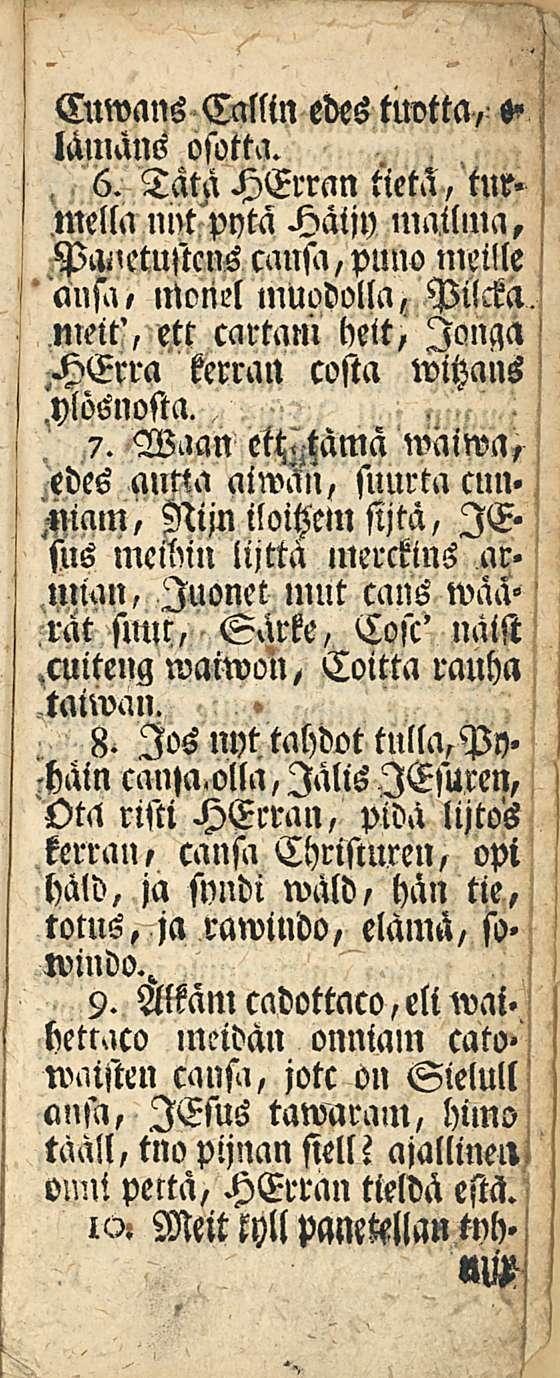 Cuwans Callin edes tuotta, e-
lämäns osotta.
6. Tätä HErran tietä, tur-
mella nyt pytä Häijy mailma,
Panetustens causa, puno meille
ansa, monel muodolla, Pilcka
meit', ett cartam heit, Jonga
HErra kerran costa witzans
ylösnosta.
7. Waan ett tämä waiwa,
edes autta aiwan, suurta cun-
niam, Nijn iloitzem sijtä, JE-
sus meihin lijttä merckins ar-
mian, Juonet mut cans wää-
rät suut, Särke, Cosc' näist
cuiteng waiwon, Coitta rauha
taiwan.
8. Jos nyt tahdot tulla, Py-
häin cansa olla, Jälis JEsuxen,
Ota risti HErran, pidä lijtos
kerran, cansa Christuxen, opi
häld, ja syndi wäld, hän tie,
totus, ja rawindo, elämä, so-
windo.
9. Älkäm cadottaco, eli wai-
hettaco meidän onniam cato-
waisten cansa, jotc on Sielull
ansa, JEsus tawaram, himo
tääll, tuo pijnan siell? ajallinen
onni pettä, HErran tieldä estä.
10. Meit kyll panetellan tyh-
mix